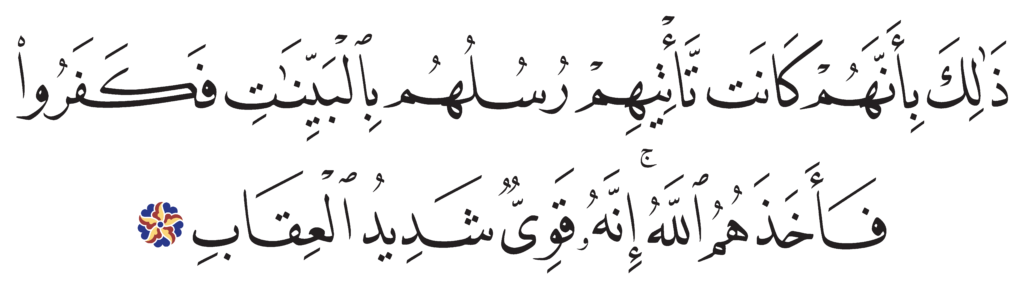 ذَٰلِكَ بِأَنَّهُمْ كَانَت تَّأْتِيهِمْ رُسُلُهُم بِٱلْبَيِّنَـٰتِ فَكَفَرُوا۟
فَأَخَذَهُمُ ٱللَّهُ ۚ إِنَّهُۥ قَوِىٌّ شَدِيدُ ٱلْعِقَابِ